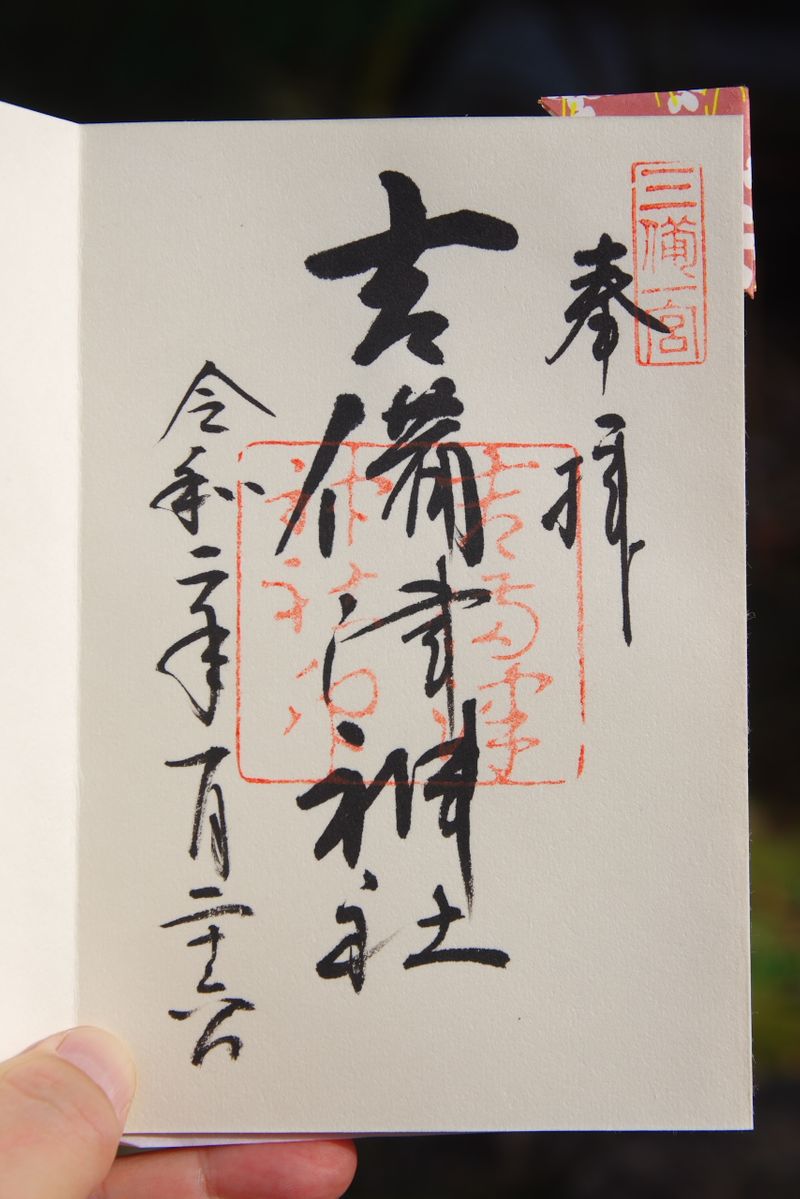 三備一宮
奉拝
吉備津神社
吉備津
神社印
令和二年一月二十六日